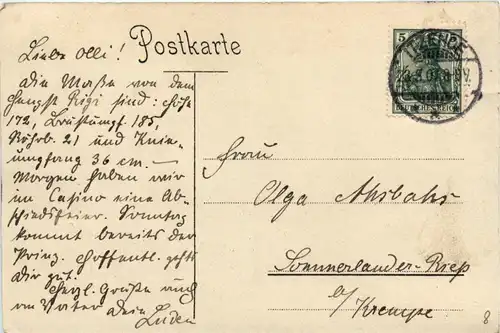 Postkarte
Liebe Olli!
Die Maße von dem
Hengst Rigi sind: Höhe
172, Brustumpf. 185,
Röhrb. 21 und Knie-
umpfang 36 cm. —
Morgen haben wir
im Casino eine Ab-
schiedsfeier. Sonntag
kommt bereits der
Prinz. Hoffentl. geht's
Dir gut.
Herzl. Grüße und
an Vater Dein
5
ITZEHOE
DEUTSCHES REICH
Frau
Olga Ahsbahs
Sommerlander-Riep
b/Krempe
8